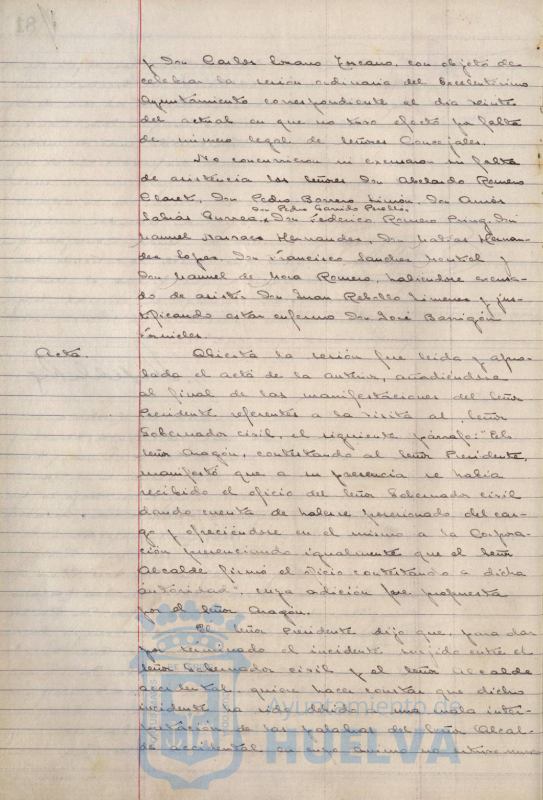 y Don Carlos Lozano Toscano, con objeto de
celebrar la sesión ordinaria del Excelentísimo
Ayuntamiento correspondiente al día veinte
del actual en que no tuvo efecto por falta
de número legal de Señores Concejales.
No concurrieron ni excusaron su falta
de asistencia los Señores Don Abelardo Romero
Claret, Don Pedro Borrero Limón, Don Amós
Don Pedro Garrido Perelló
Sabrás Gurrea, Don Federico Romero Don
Manuel Narraco Hernandez, Don Matias Hernan-
dez Lopez, Don Francisco Sanchez y
Don Manuel de Mora Romero, habiendose excusa-
do de asistir Don Juan Rebollo Jimenez y jus-
tificando estar enfermo Don José Barrigón
Fornieles.
Acta.
Abierta la sesión fue leida y apro-
bada el acta de la anterior, añadiendose
al final de las manifestaciones del Señor
Presidente referentes a la visita al Señor
Gobernador civil, el siguiente párrafo: "El
Señor Aragón, contestando al Señor Presidente,
manifestó que a su presencia se había
recibido el oficio del Señor Gobernador civil
dando cuenta de haberse posesionado del car-
go y ofreciéndose en el mismo a la Corpora-
ción presenciando igualmente que el Señor
Alcalde firmó el oficio contestando a dicha
autoridad", cuya adición fue propuesta
por el Señor Aragón.
El Señor Presidente dijo que, para dar
por terminado el incidente surjido entre el
Señor Gobernador civil y el Señor Alcalde
accidental, quiere hacer constar que dicho
incidente ha sido debido a una mala inter-
pretación de las palabras del Señor Alcal-
de accidental en cuyo ánimo no estuvo nunca
Ayuntamiento de
HUELVA